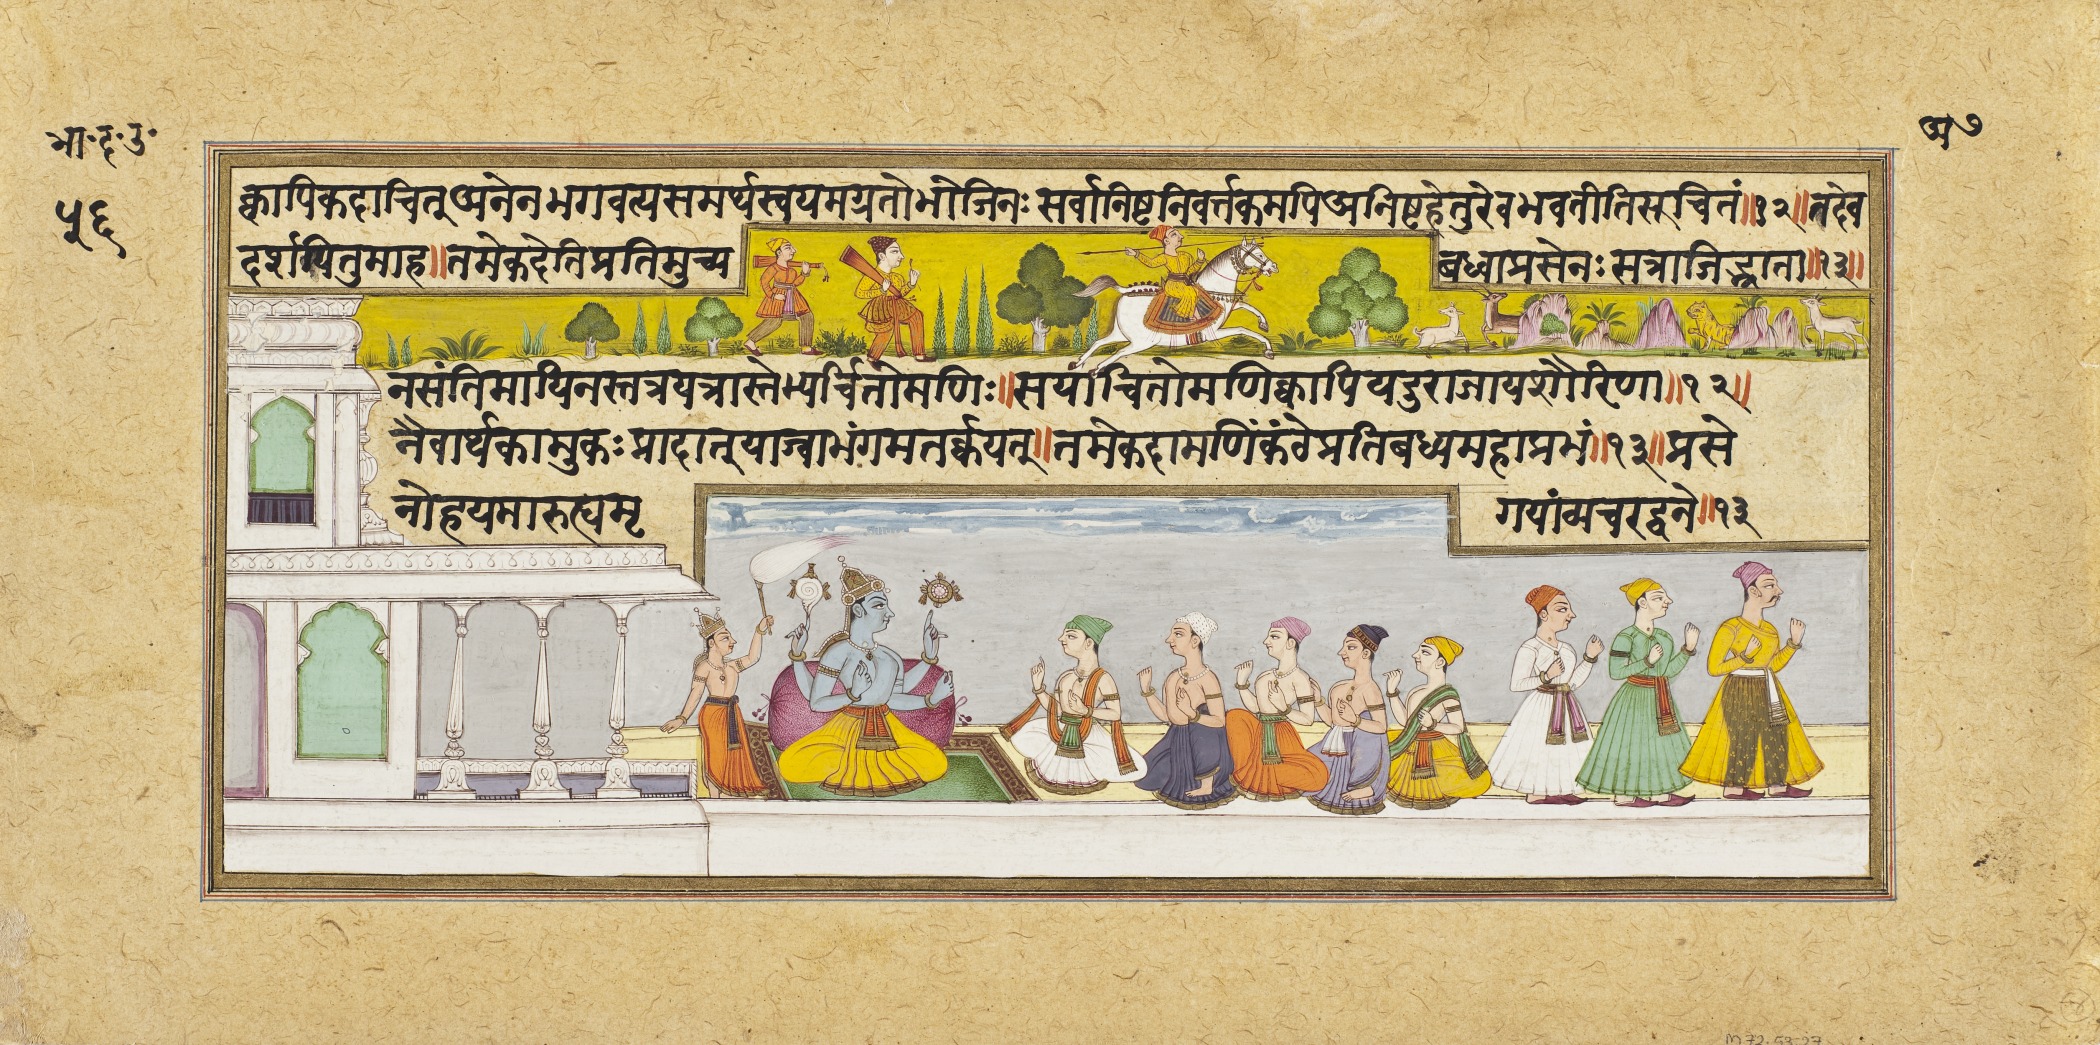 भा·द·उ·
५६
अ७
क्वापिकदाचित्अनेनभगवत्यसमर्प्यस्वयमग्रतोभोजिनः सर्वानिष्टनिवर्त्तकमपिअनिष्टहेतुरेवभवतीतिसूचितं॥१२॥तदेव
दर्शयितुमाह॥तमेकदेतिप्रतिमुच्य बध्वाप्रसेनः सत्राजिद्भ्राता॥१३॥
नसंतिमायिनस्तत्रयत्रास्तेभ्यर्चितोमणिः॥सयाचितोमणिक्वापियदुराजायशौरिणा॥१२॥
नैवार्थकामुकः प्रादात्याञ्चाभंगमतर्क्कयत्॥तमेकदामणिंकंठेप्रतिबध्यमहाप्रभं॥१३॥प्रसे
नोहयमारुह्यमृ गयांव्यचरद्वने॥१३
M72.53.27